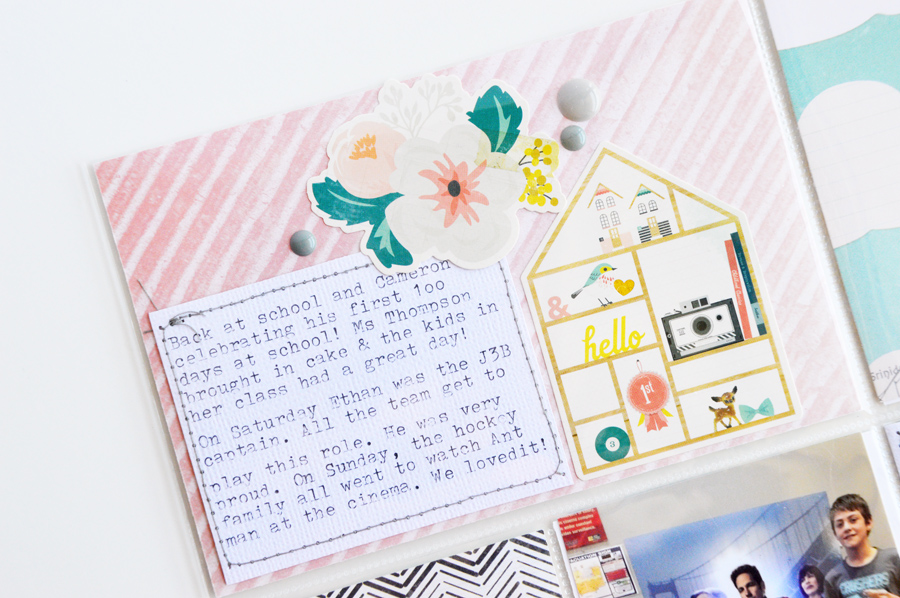 Back at school and Cameron
celebrating his first 100
days at school! Ms Thompson
brought in cake & the kids in
her class had a great day!
On Saturday Ethan was the J3B
captain. All the team get to
play this role. He was very
proud. On Sunday, the hockey
family all went to watch Ant
man at the cinema. We lovedit!
&
hello
1st
3
CRUSHERS